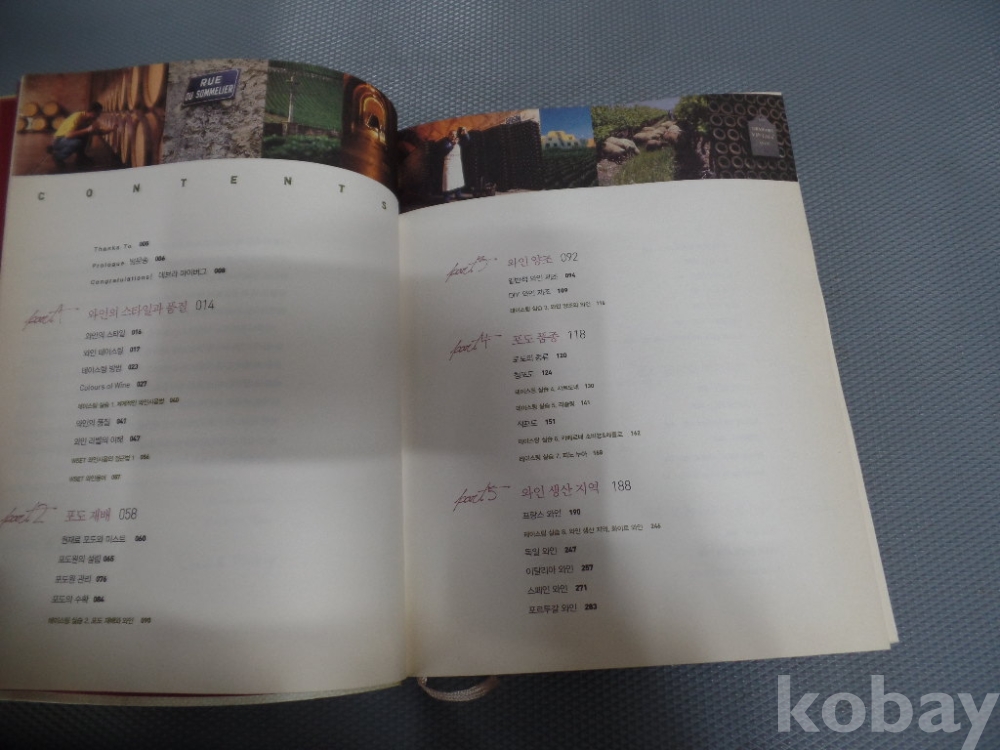 RUE
DU SOMMELIER
CONTENTS
Thanks To 005
Prologue 방문송 006
Congratulations! 데브라 마이버그 008
part 1 와인의 스타일과 품질 014
와인의 스타일 016
와인 테이스팅 017
테이스팅 방법 023
Colours of Wine 027
테이스팅 실습 1. 와인 040
와인의 품질 041
와인 라벨의 이해 047
WSET 와인 1 056
WSET 와인용어 057
part 2 포도 재배 058
원재료 포도와 미스트 060
포도원의 설립 065
포도원 관리 076
포도의 수확 084
테이스팅 실습 2. 포도 재배와 와인 090
part 3 와인 양조 092
와인 제조 094
DIY 와인 제조 109
테이스팅 실습 3. 와인 116
part 4 포도 품종 118
포도의 종류 120
청포도 124
테이스팅 실습 4. 샤르도네 130
테이스팅 실습 5. 리슬링 141
적포도 151
테이스팅 실습 6. 카베르네 소비뇽&시라즈 162
테이스팅 실습 7. 피노 누아 169
part 5 와인 생산 지역 188
프랑스 와인 190
테이스팅 실습 8. 와인 생산 지역, 화이트 와인 246
독일 와인 247
이탈리아 와인 257
스페인 와인 271
포르투갈 와인 283
kobay